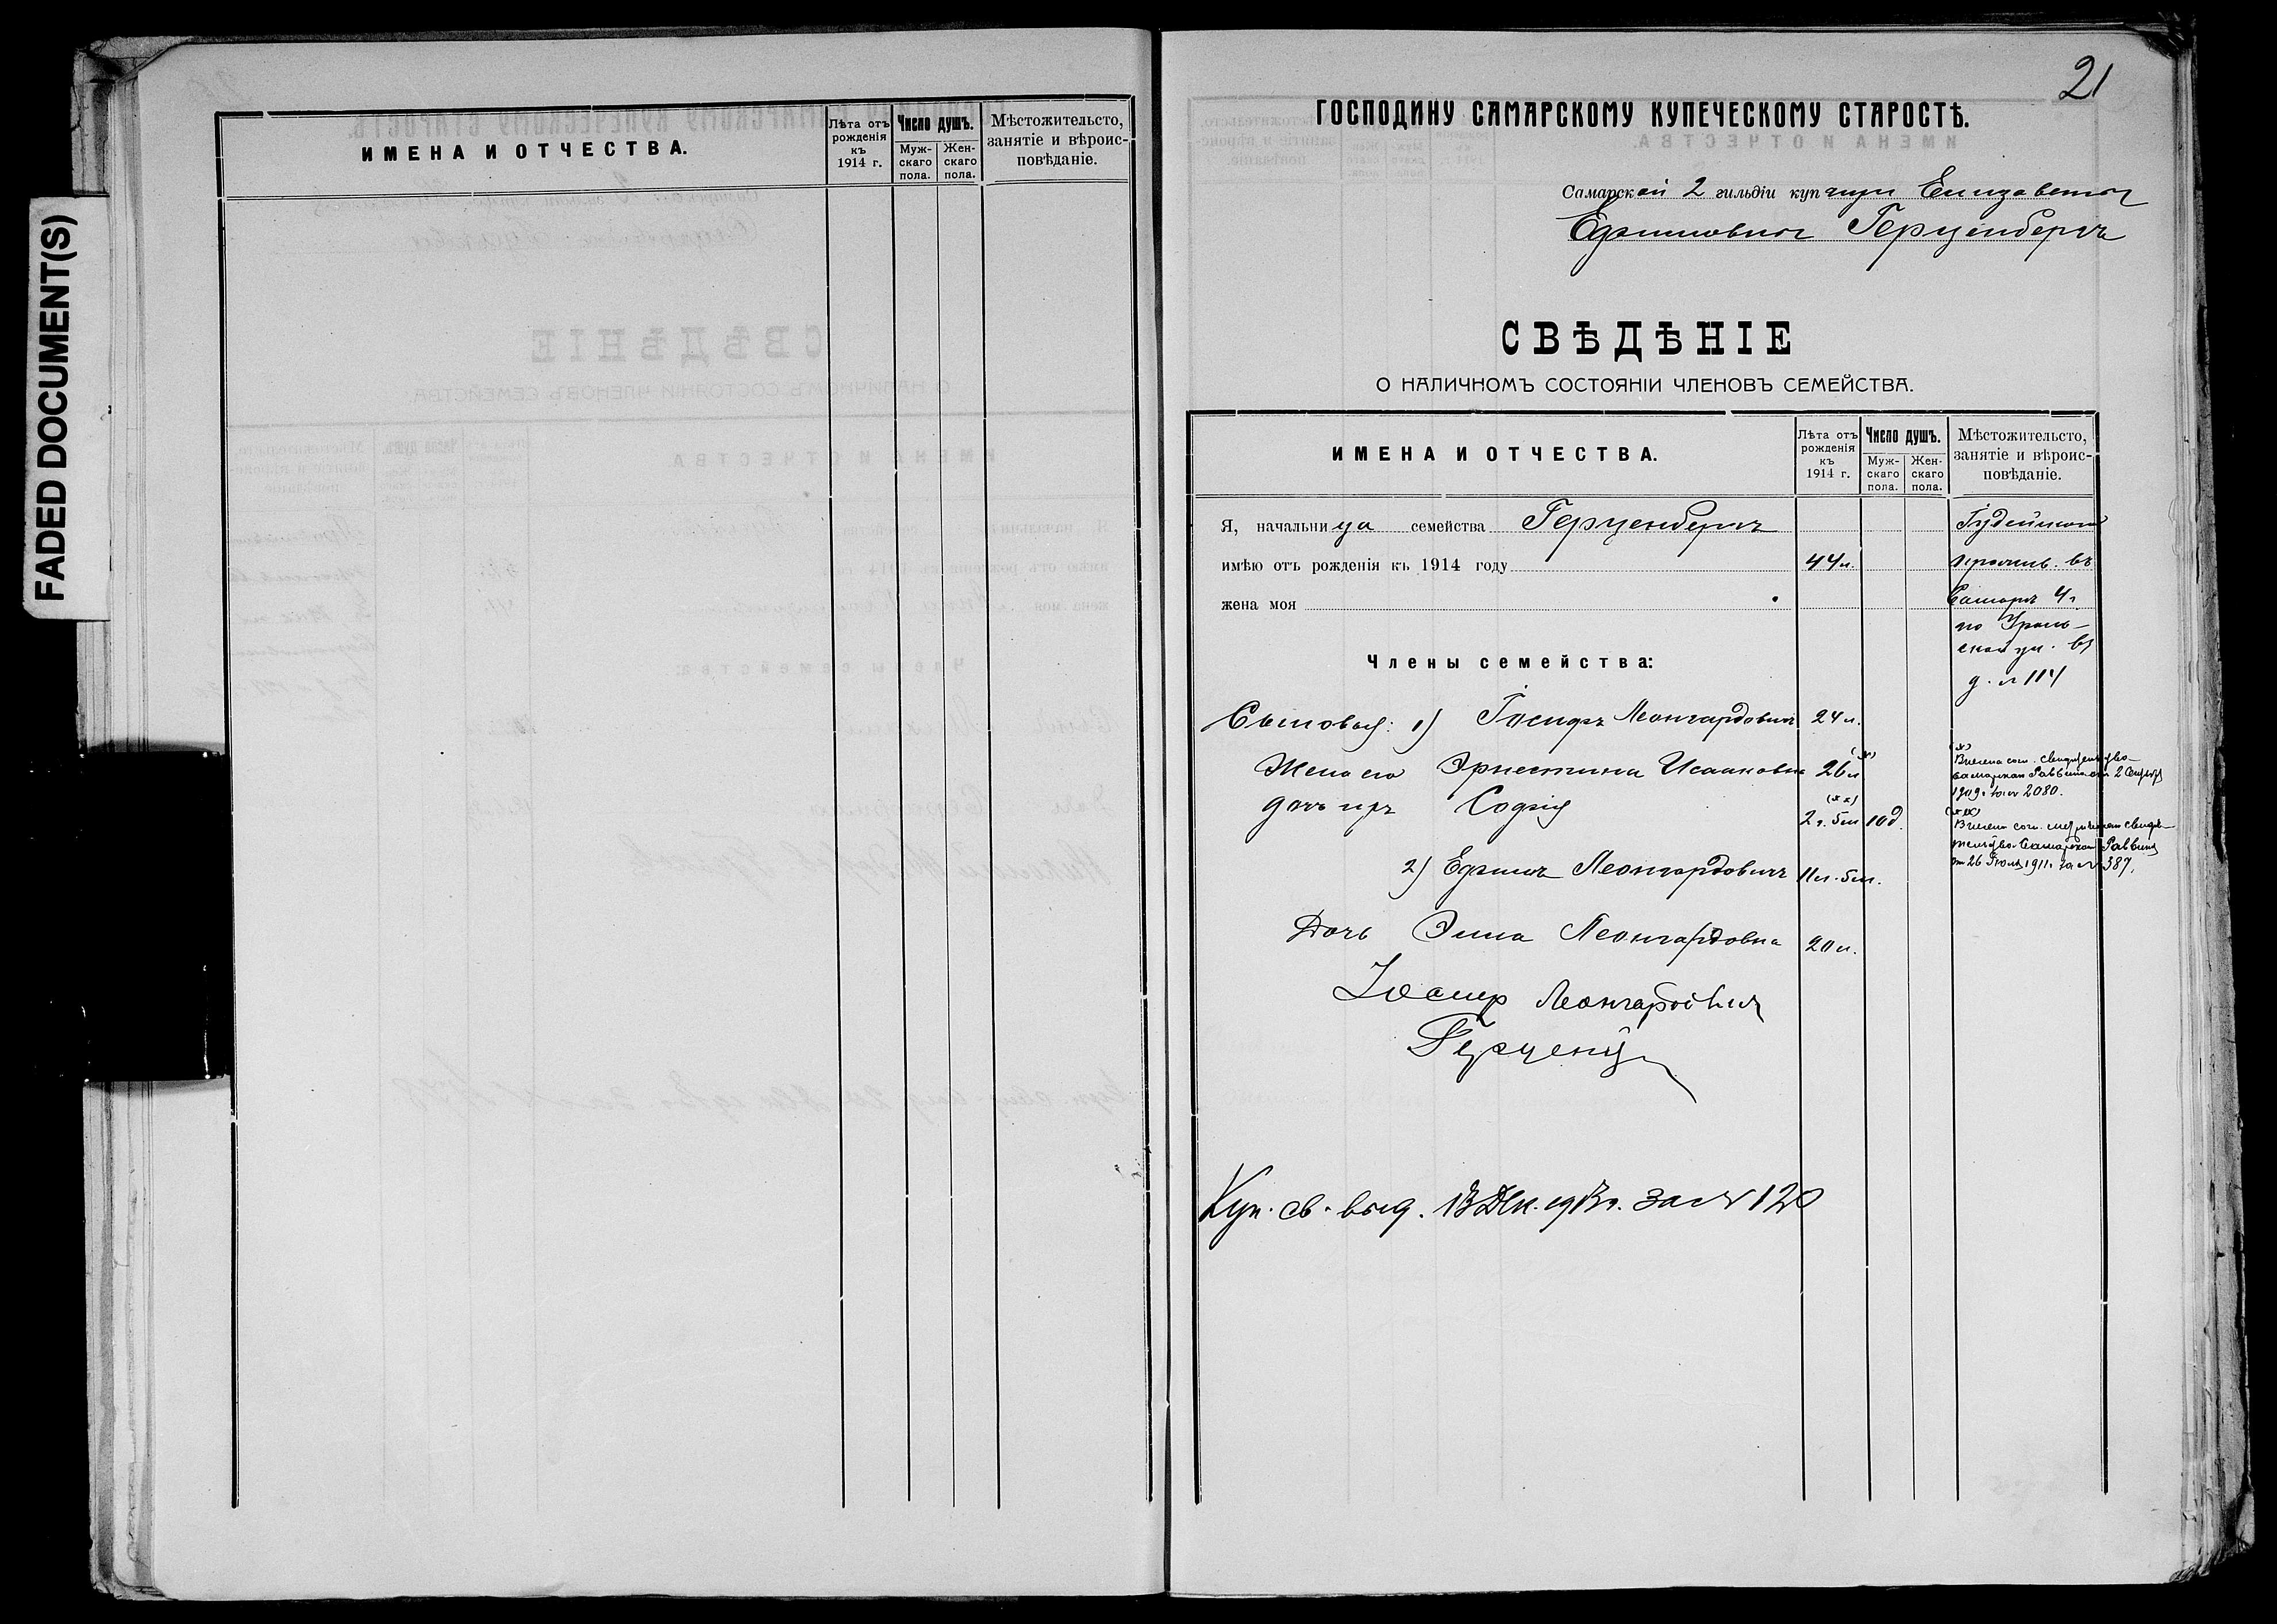 FADED DOCUMENT(S)
ИМЕНА И ОТЧЕСТВА.
Лѣта отъ рожденія къ 1914 г.
Число душъ.
Муж-скаго пола.
Жен-скаго пола.
Мѣстожительсто, занятіе и вѣроис-повѣданіе.
21
ГОСПОДИНУ САМАРСКОМУ КУПЕЧЕСКОМУ СТАРОСТѢ.
Самарской 2 гильдіи купчихи Елизаветы
Ефимовны Герценбергъ
СВѢДѢНІЕ
О НАЛИЧНОМЪ СОСТОЯНІИ ЧЛЕНОВЪ СЕМЕЙСТВА.
ИМЕНА И ОТЧЕСТВА.
Лѣта отъ рожденія къ 1914 г.
Число душъ.
Муж-скаго пола.
Жен-скаго пола.
Мѣстожительсто, занятіе и вѣроис-повѣданіе.
Я, начальница семейства Герценбергъ Іудейскаго
имѣю отъ рожденія къ 1914 году 44 л. прожив. въ
жена моя Самарѣ 4 ч.
по Ураль-
ской ул. въ
Члены семейства:
д. № 114
Сыновья: 1) Іосифъ Леонгардовичъ 24 л.
Жена его Эрнестина Исааковна 26 л (х)
дочь ихъ Софія 2 г. 5 м 10 д. (х х)
(х)
Внесена сог. свидѣтельство
Самарскаго Раввина от 2
1909 г. за № 2080.
(х х)
Внесена согл. метрическаго свидѣ-
тельство Самарскаго Раввина
от 26 Іюля 1911 г. за № 387.
2) Ефимъ Леонгардовичъ 11 л. 5 м.
Дочь Эмма Леонгардовна 20 л.
Іосифъ Леонгардовичъ
Куп. св. выд. 13 Дек. 1913 г. за № 120